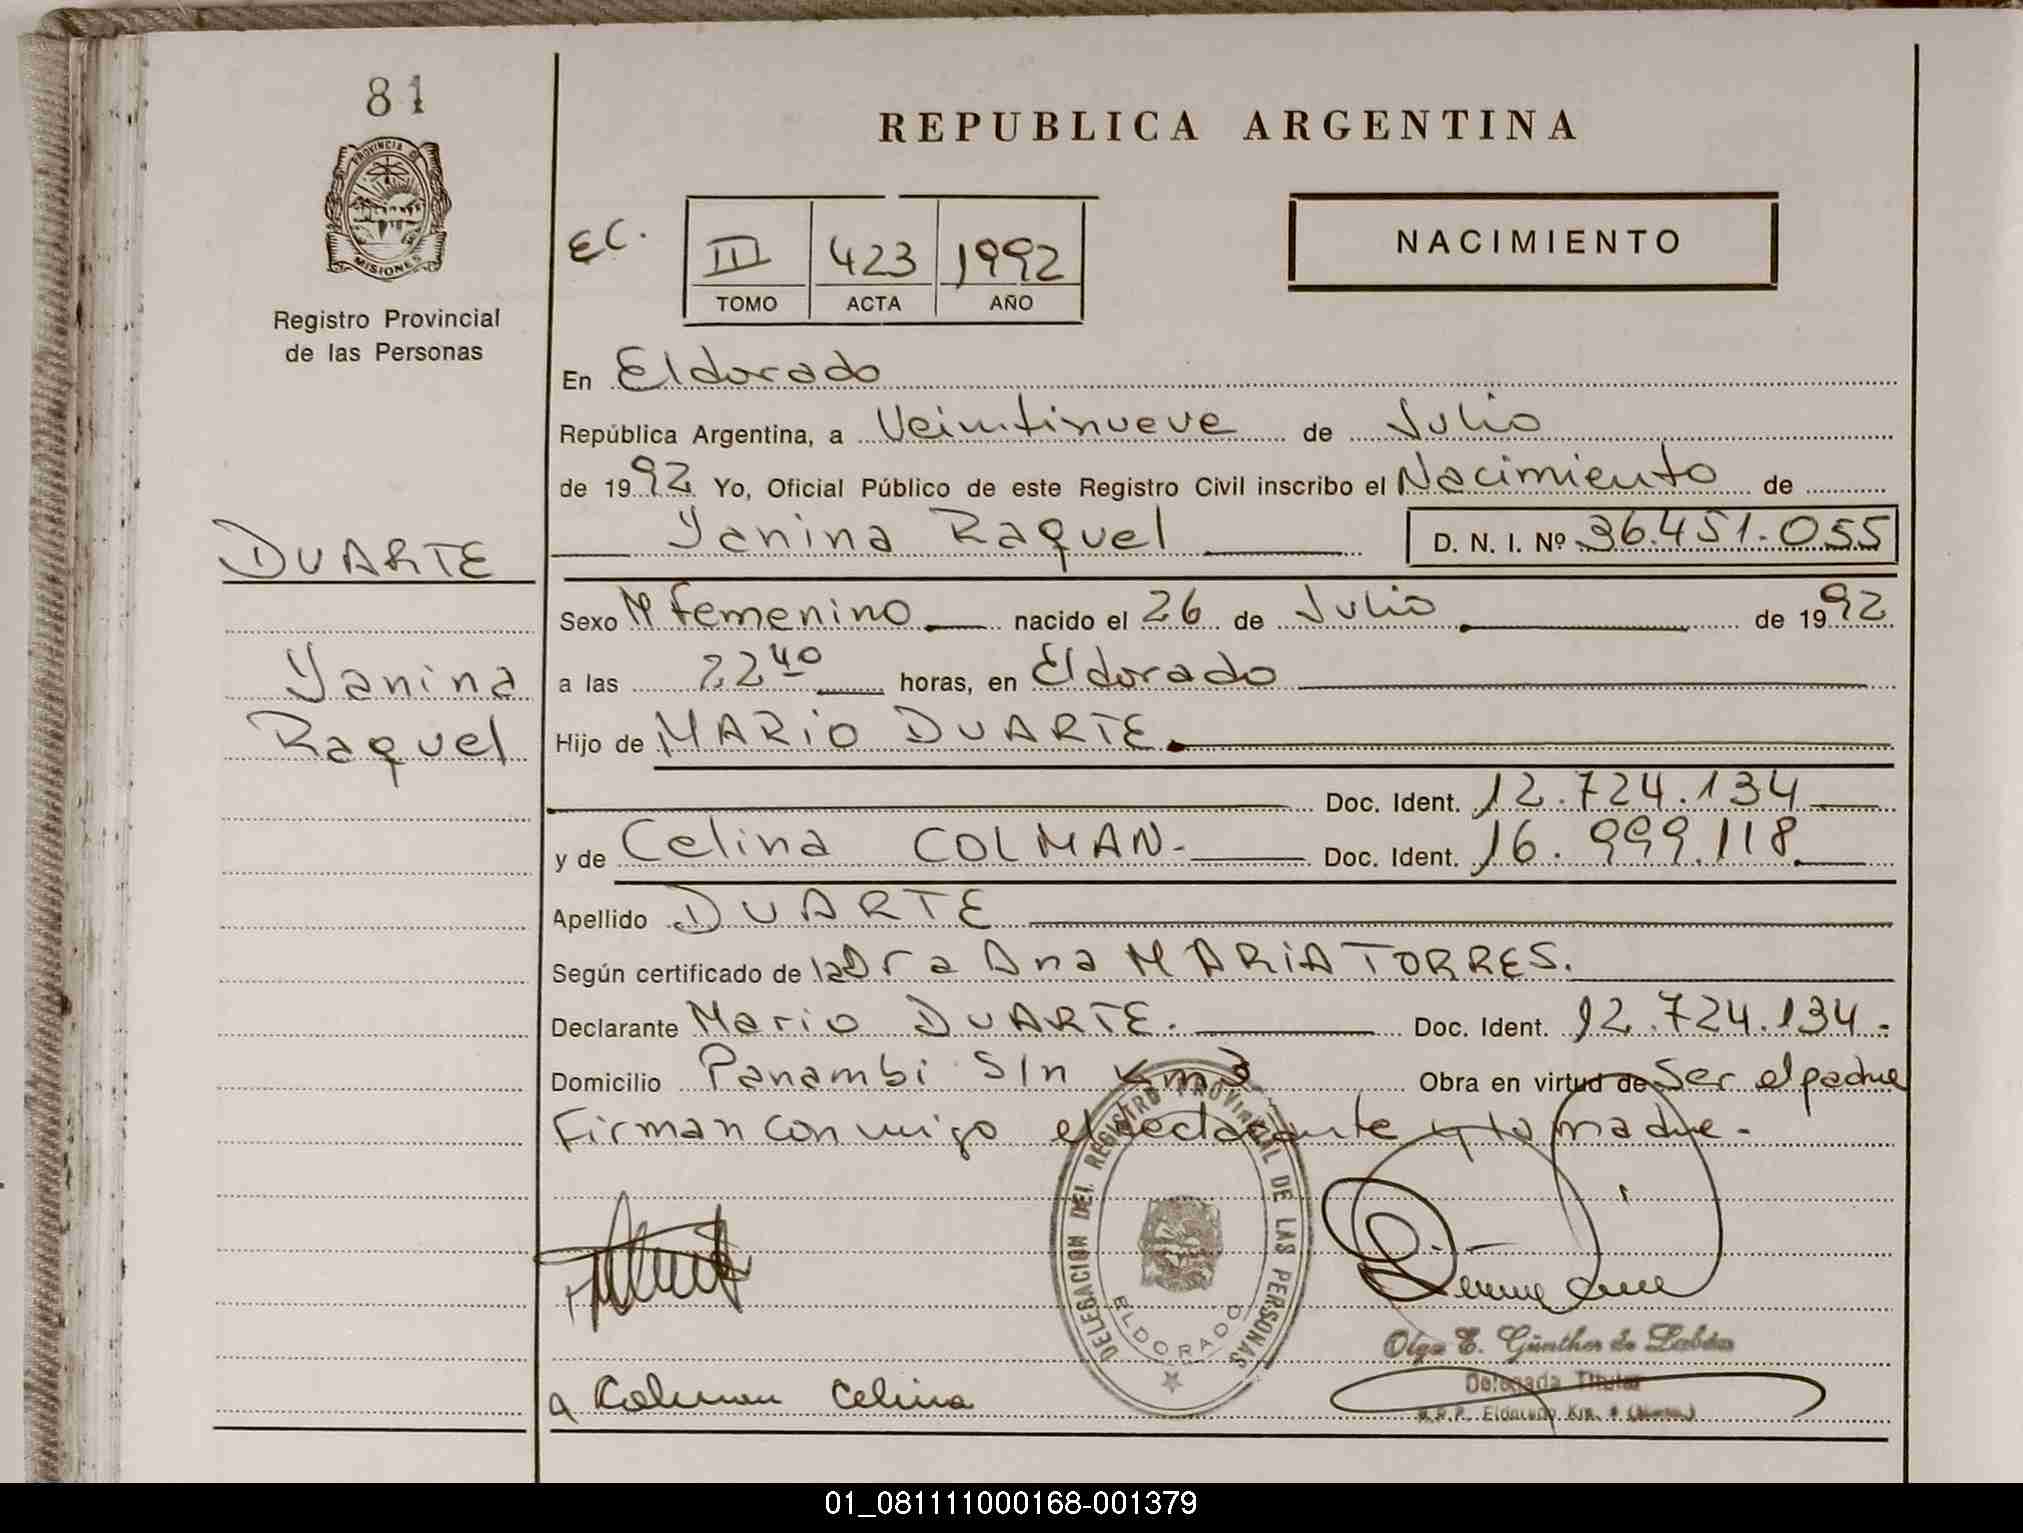 81
PROVINCIA DE
MISIONES
Registro Provincial
de las Personas
REPUBLICA ARGENTINA
EC.
III 423 1992
TOMO ACTA AÑO
NACIMIENTO
En Eldorado
República Argentina, a Veintinueve de Julio
de 1992 Yo, Oficial Público de este Registro Civil inscribo el Nacimiento de
Yanina Raquel D. N. I. Nº 36.451.055
DUARTE
Yanina
Raquel
Sexo M femenino nacido el 26 de Julio de 1992
a las 22 40 horas, en Eldorado
Hijo de MARIO DUARTE.
Doc. Ident. 12.724.134
y de Celina COLMAN.- Doc. Ident. 16.999.118
Apellido DUARTE
Según certificado de la Dra Ana MARIA TORRES.
Declarante Mario DUARTE. Doc. Ident. 12.724.134.-
Domicilio Panambi S/n Km 3 Obra en virtud de Ser el padre
Firman conmigo el declarante y la madre.-
DELEGACION DEL REGISTRO PROVINCIAL DE LAS PERSONAS
ELDORADO
Olga E. Günther de
Delegada Titular
Eldorado Km.
Colman Celina
01_081111000168-001379